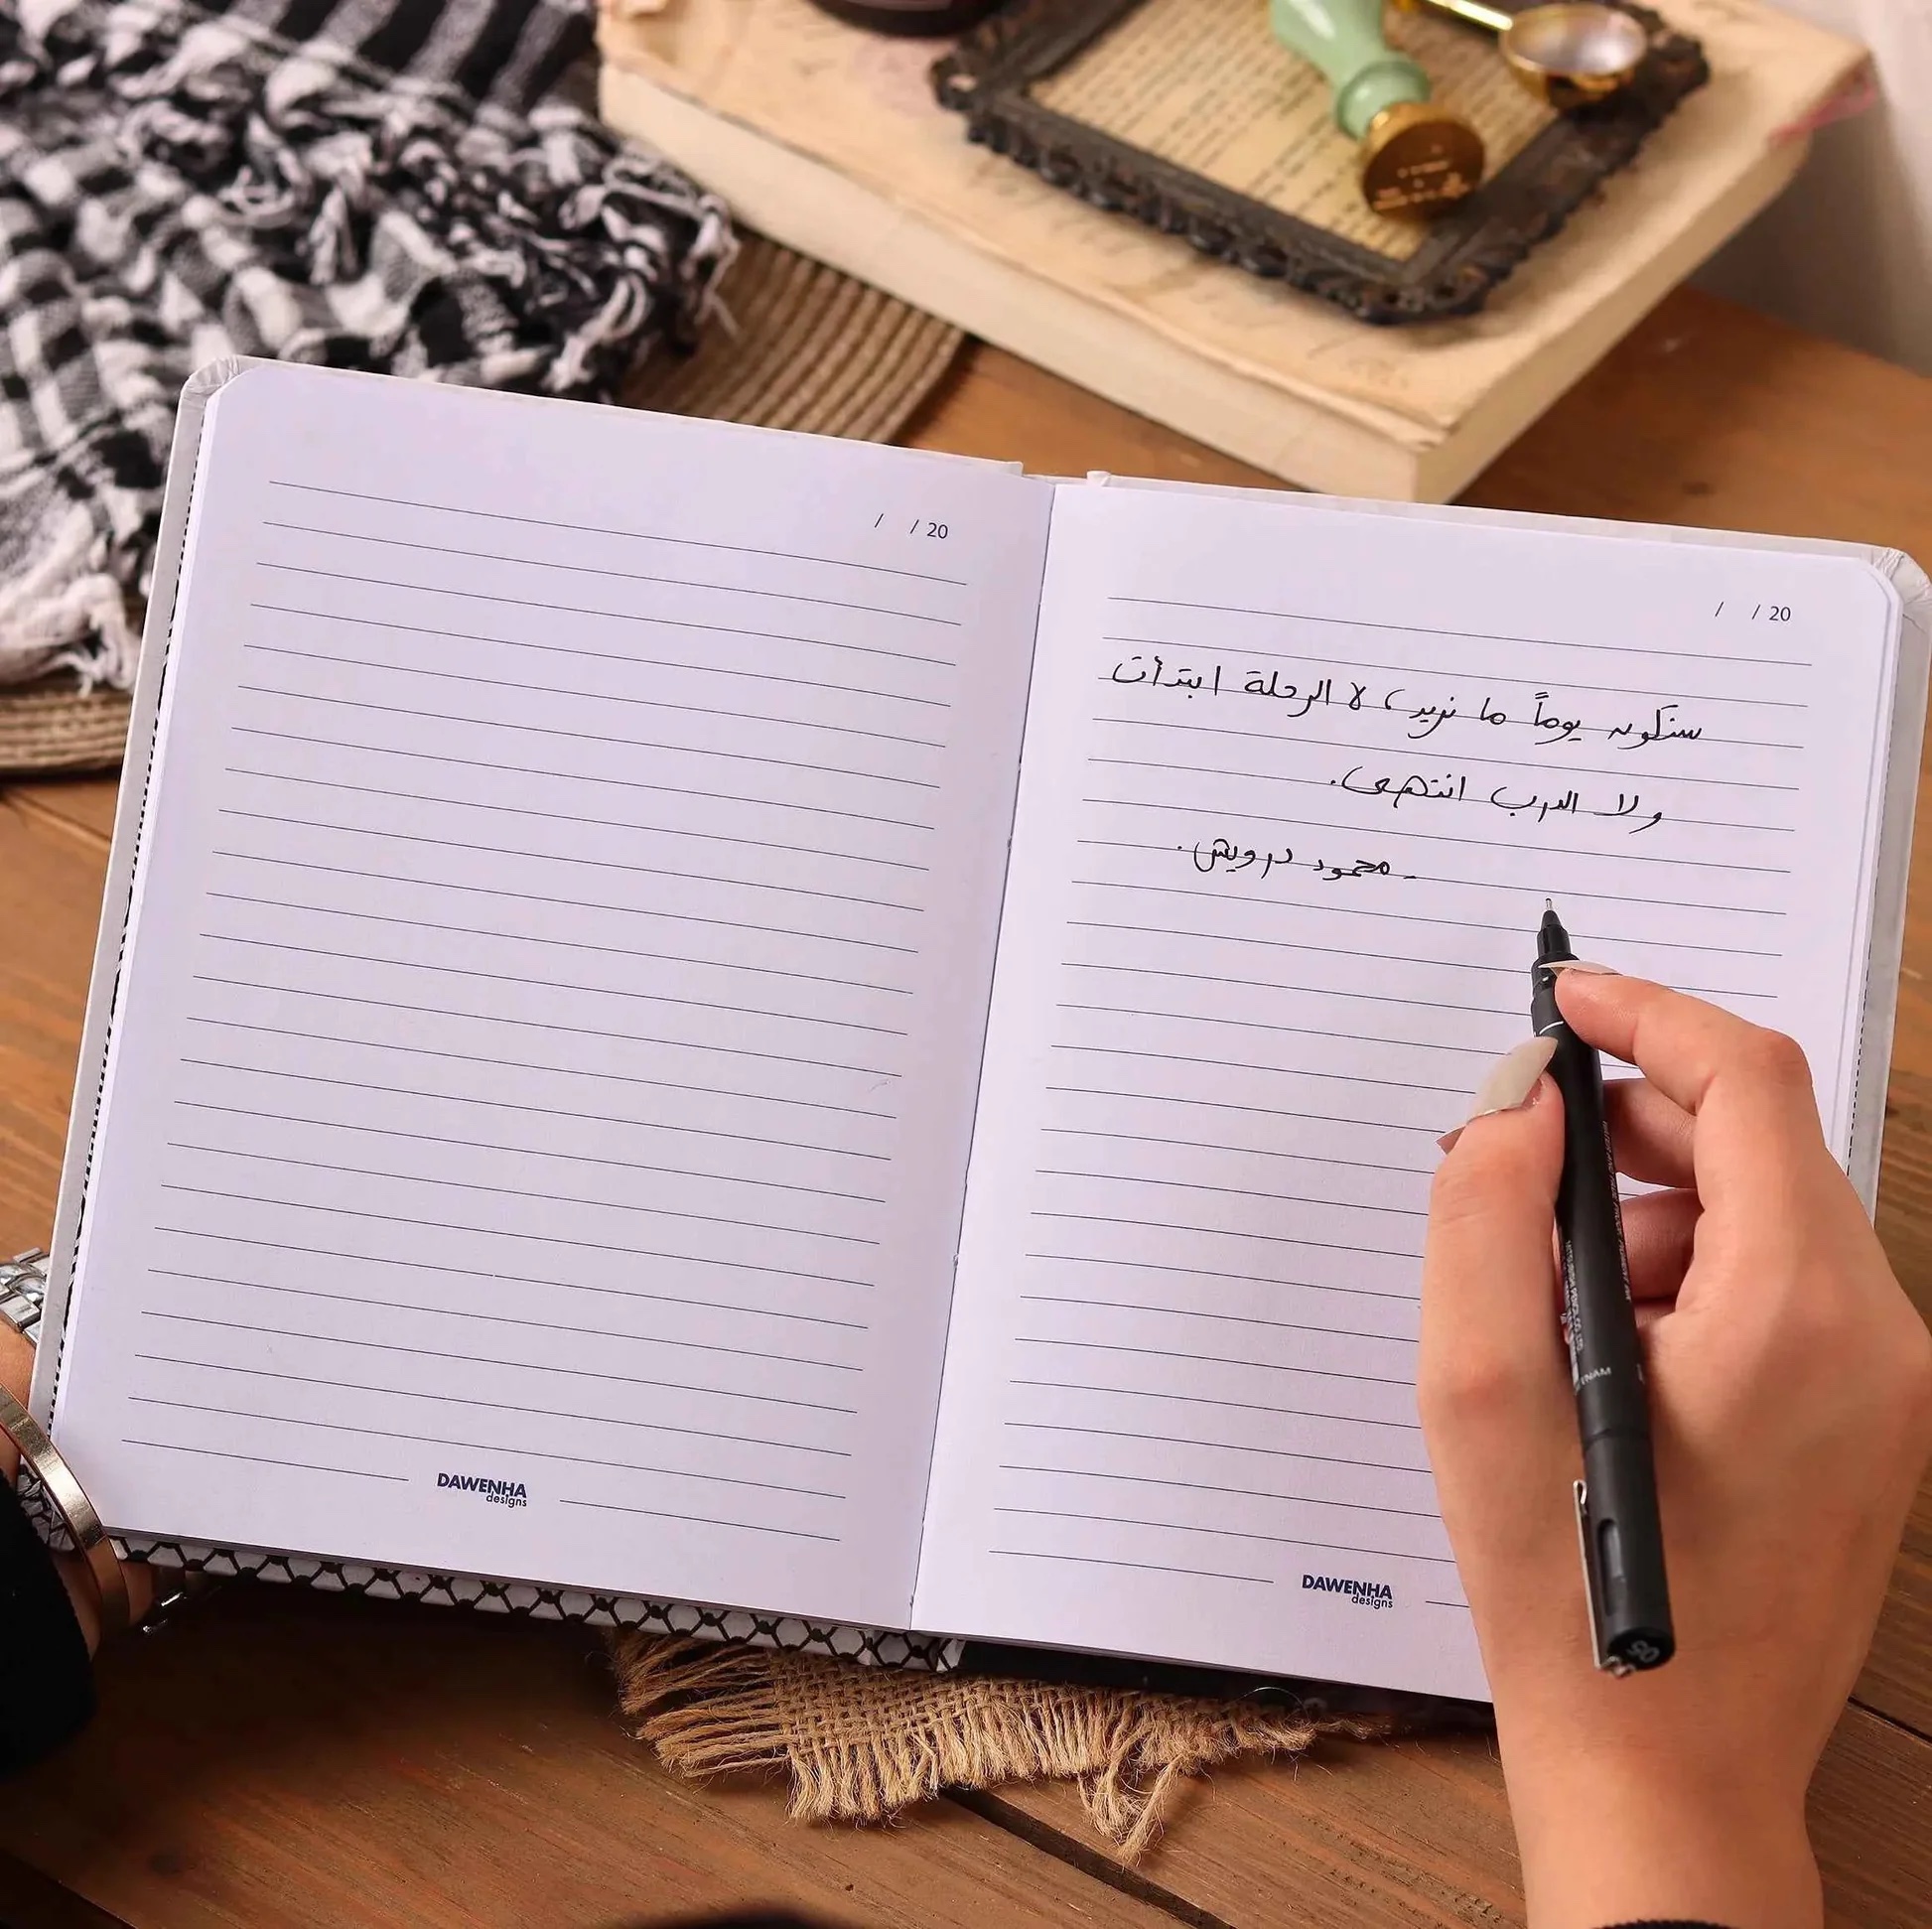 / / 20
/ / 20
سنكون يوماً ما نريد، لا الرحلة ابتدأت
ولا الدرب انتهى.
- محمود درويش.
DAWENHA
designs
DAWENHA
designs